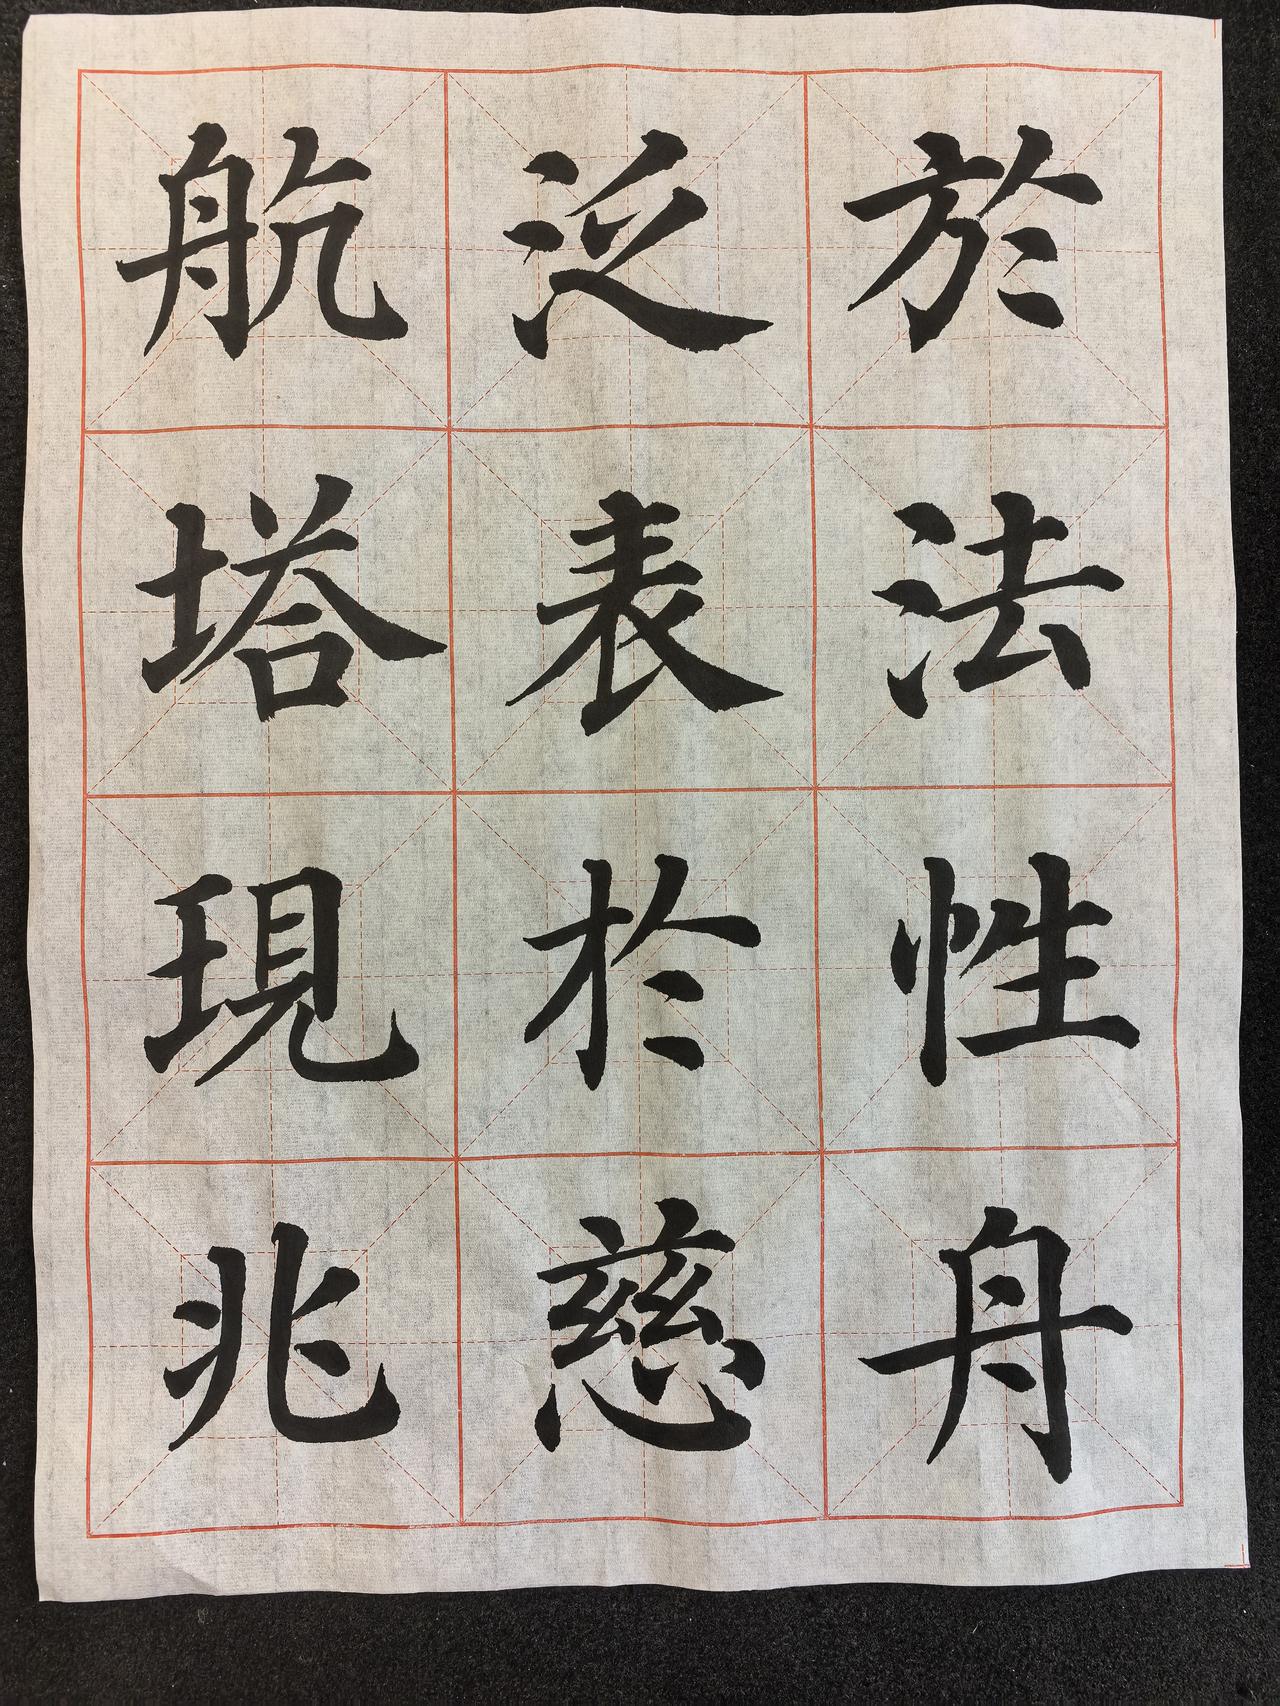 於法性舟
泛表於慈
航塔現兆